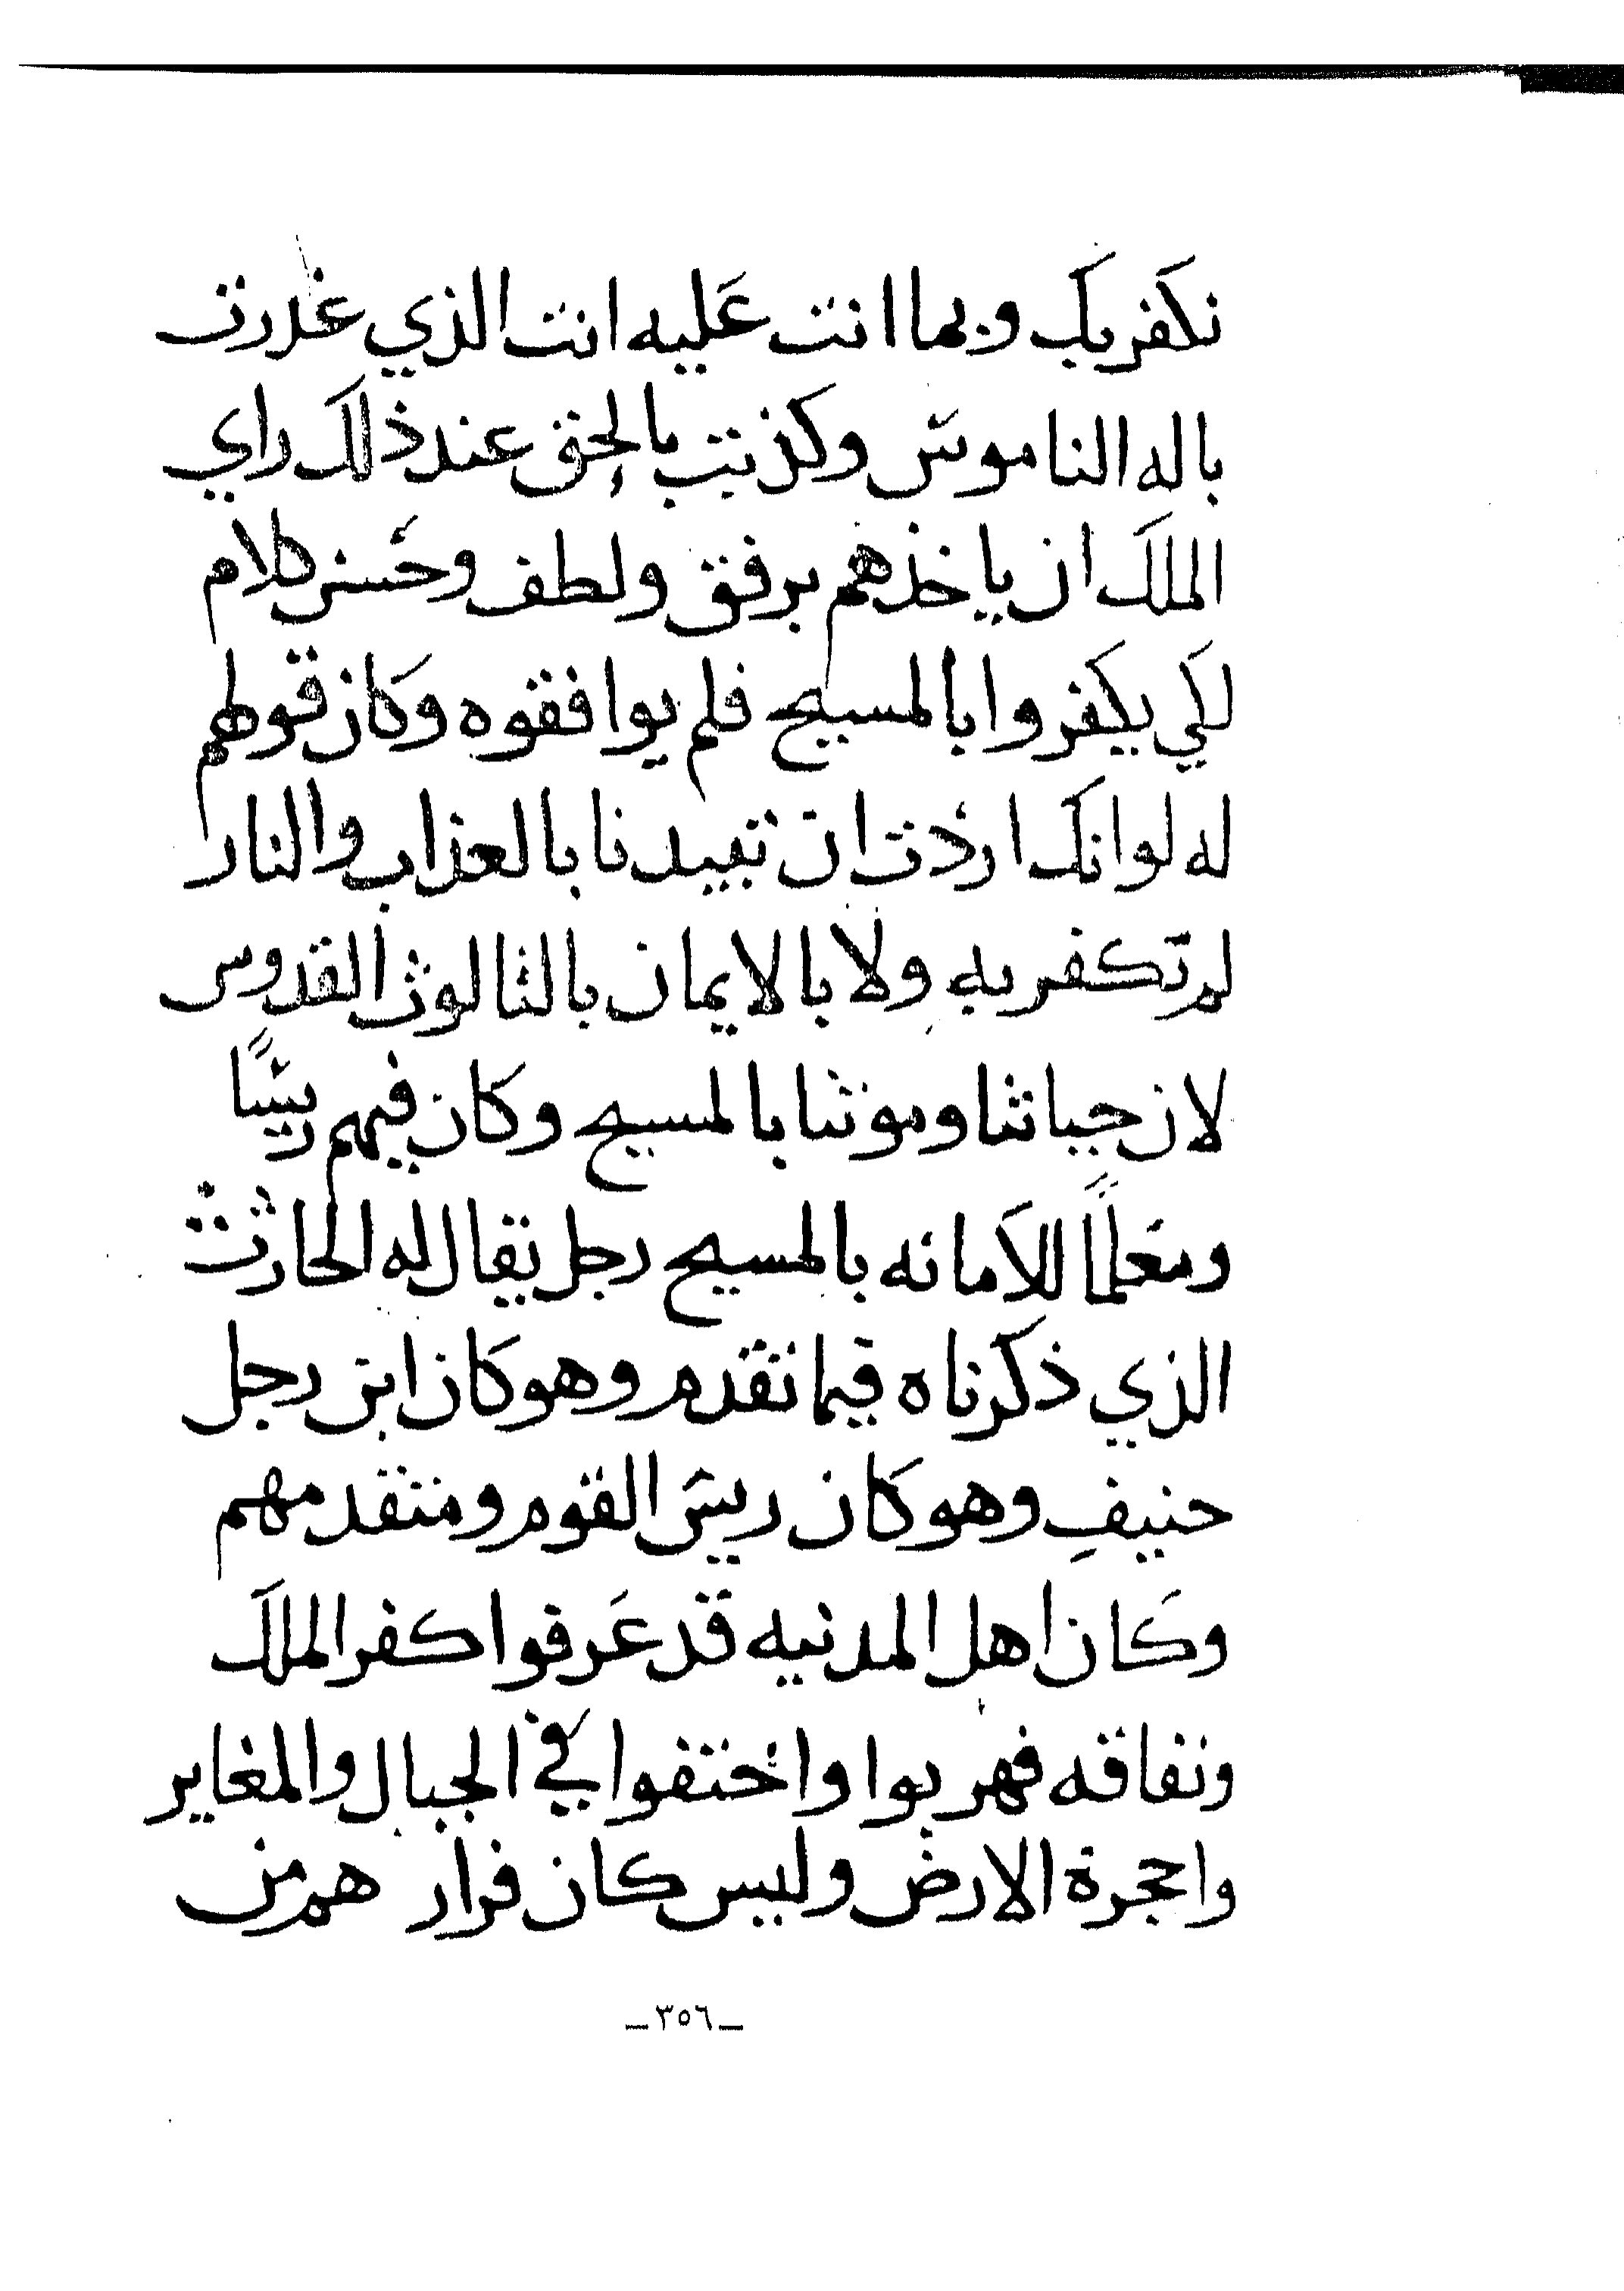 نكفر بك وبما انت عَليه انت الذي غدرت
باله الناموس وكذبت بالحق عند ذلك راي
الملك ان ياخذهم برفق ولطف وحسن كلام
لكي يكفروا بالمسيح فلم يوافقوه وكان قولهم
له لو انك اردت ان تبيدنا بالعذاب والنار
لم نكفر به ولا بالايمان بالثالوث القدوس
لان حياتنا وموتنا بالمسيح وكان فيهم رييسًا
ومعلمًا للامانه بالمسيح رجل يقال له الحارث
الذي ذكرناه فيما تقدم وهو كان ابن رجل
حنيف وهو كان رييس القوم ومتقدمهم
وكان اهل المدنيه قد عَرفوا كفر الملك
ونفاقه فهربوا واختفوا في الجبال والمغاير
واحجرة الارض وليس كان فرارهم من
ـ٣٥٦ـ